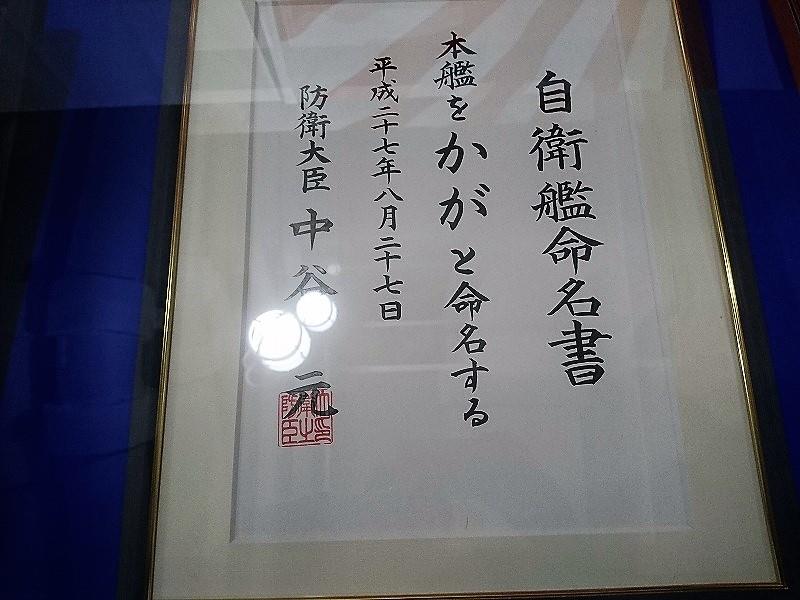 自衛艦命名書
本艦をかがと命名する
平成二十七年八月二十七日
防衛大臣 中谷 元